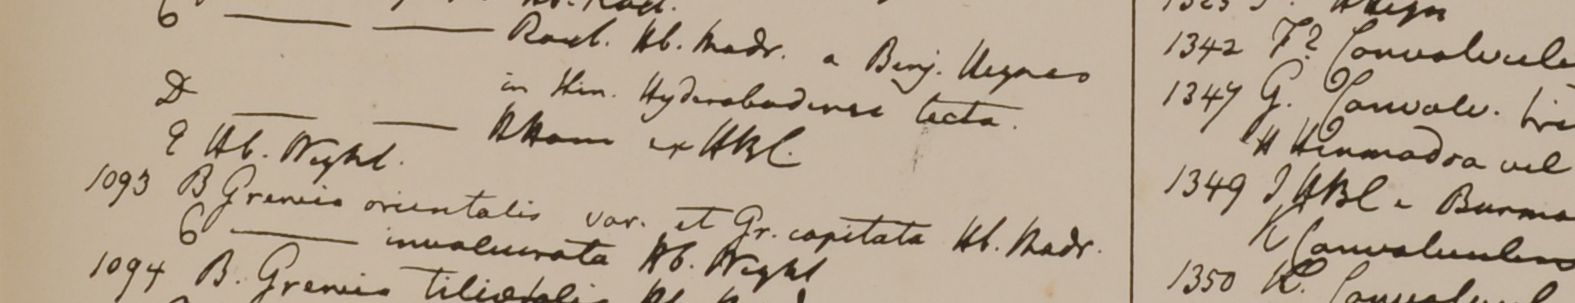 Hb. Roxb.
C ——— ——— Roxb. Hb. Madr. a Benj. Heyneo
in Itin. Hyderabadense lecta.
D ——— ——— HHam ex HBC.
E Hb. Wight.
1093 B Grewia orientalis var. et Gr. capitata Hb. Madr.
C ——— involucrata Hb. Wight
1094 B. Grewia tiliaefolia Hb.
1342 F? Convolvulus
1347 G. Convolv.
H vel
1349 I HBC e
K Convolvulus
1350 K.